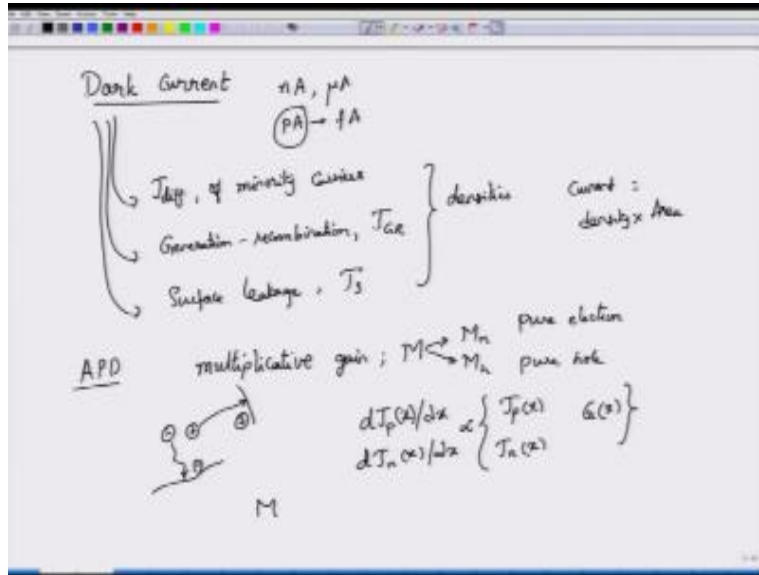 Dark Current nA, μA
pA → fA
Jdiff, of minority carriers
Generation-recombination, JGR
Surface leakage, Js
} densities
Current =
density x Area
APD multiplicative gain ; M
Mn pure electron
Mh pure hole
dJp(x)/dx ∝ { Jp(x) G(x) }
dJn(x)/dx Jn(x)
- + +
M